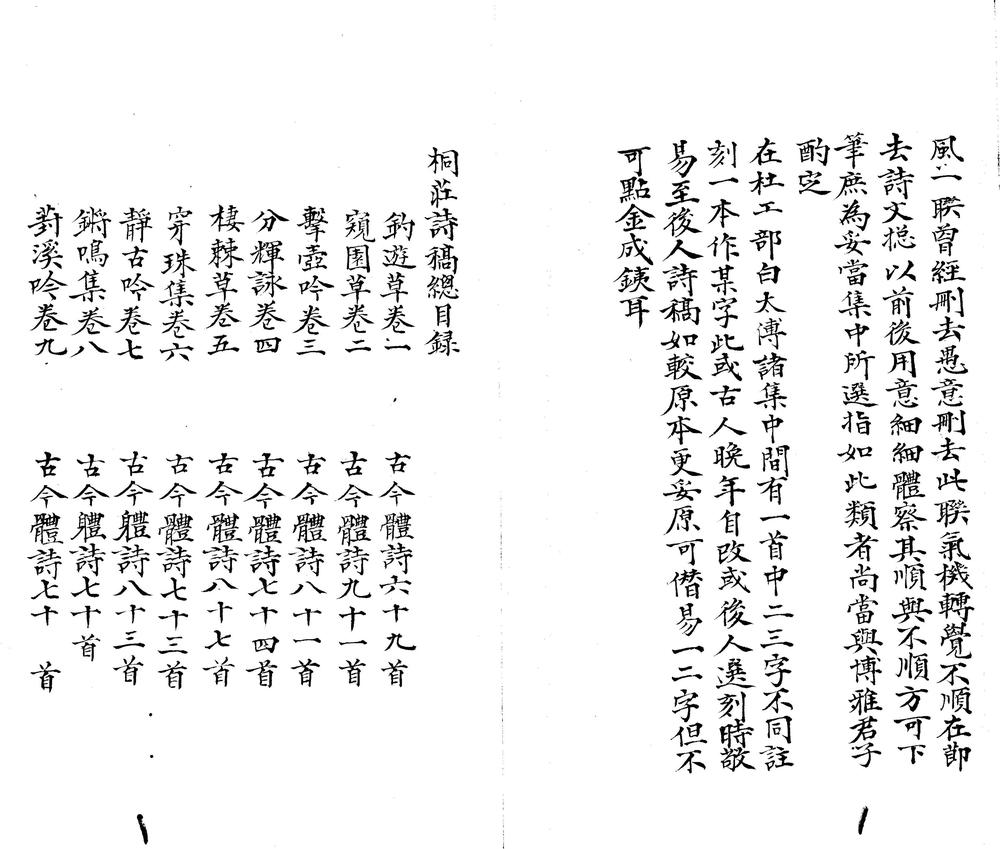 風一聯曾經刪去愚意刪去此聯氣機轉覺不順在節
去詩文捴以前後用意細細體察其順與不順方可下
筆庶為妥當集中所選指如此類者尚當與博雅君子
酌定
在杜工部白太傅諸集中間有一首中二三字不同註
刻一本作某字此或古人晚年自改或後人選刻時敬
易至後人詩稿如較原本更妥原可僭易一二字但不
可點金成銕耳
桐莊詩稿總目録
釣遊草卷一 古今體詩六十九首
窺園草卷二 古今體詩九十一首
擊壺吟卷三 古今體詩八十一首
分輝詠卷四 古今體詩七十四首
棲棘草卷五 古今體詩八十七首
穿珠集卷六 古今體詩七十三首
靜古吟卷七 古今軆詩八十三首
鏘鳴集卷八 古今軆詩七十首
葑溪吟卷九 古今體詩七十 首